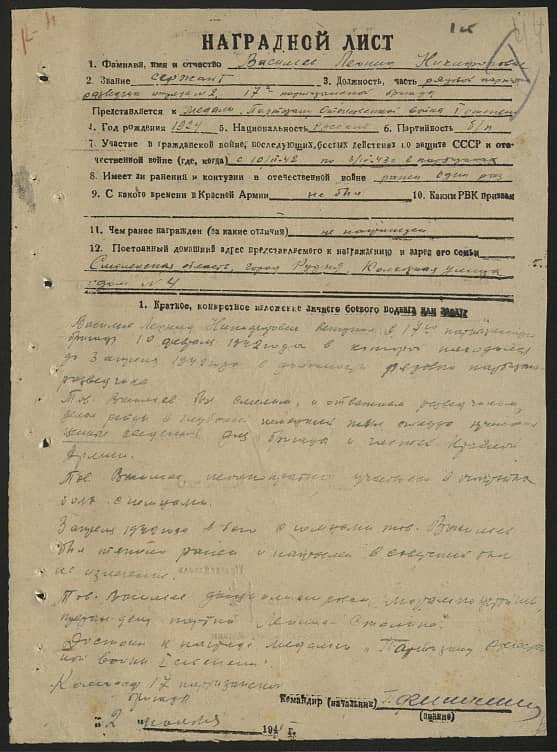 НАГРАДНОЙ ЛИСТ
1. Фамилия, имя и отчество Васильев Леонид Никифорович
2. Звание сержант 3. Должность, часть рядовой
разведки отряда № 2, 17ой партизанской бригады
Представляется к медали "Партизану Отечественной войны" I степени
4. Год рождения 1924 5. Национальность русский 6. Партийность б/п
7. Участие в гражданской войне, последующих боевых действиях по защите СССР и оте-
чественной войне (где, когда) с 10/II-42 по в партизанах
8. Имеет ли ранения и контузии в отечественной войне ранен один раз
9. С какого времени в Красной Армии не был 10. Каким РВК призван
11. Чем ранее награжден (за какие отличия) не награжден
12. Постоянный домашний адрес представляемого к награждению и адрес его семьи
Смоленская область, город Рудня, Колхозная улица
дом № 4
1. Краткое, конкретное изложение личного боевого подвига или заслуг
Васильев Леонид Никифорович вступил в 17ую партизанскую
бригаду 10 февраля 1942 года в которой находился
до 3 апреля в должности рядового
разведчика
Тов. Васильев был смелым и отважным разведчиком,
делал рейды в глубокий тыл откуда
сведения для бригады и частей Красной
Армии.
Тов. Васильев неоднократно участвовал в открытых
боях с немцами.
3 апреля в бою с немцами тов. Васильев
был ранен и направлен в советский тыл
на излечение.
Тов. Васильев дисциплинирован, морально устойчив,
предан делу партии Ленина-Сталина.
Достоин к награде медалью "Партизану Отечествен-
ной войны I степени".
Командир 17 партизанской
бригады
Командир (начальник)
(подпись)
"2" 194 г.